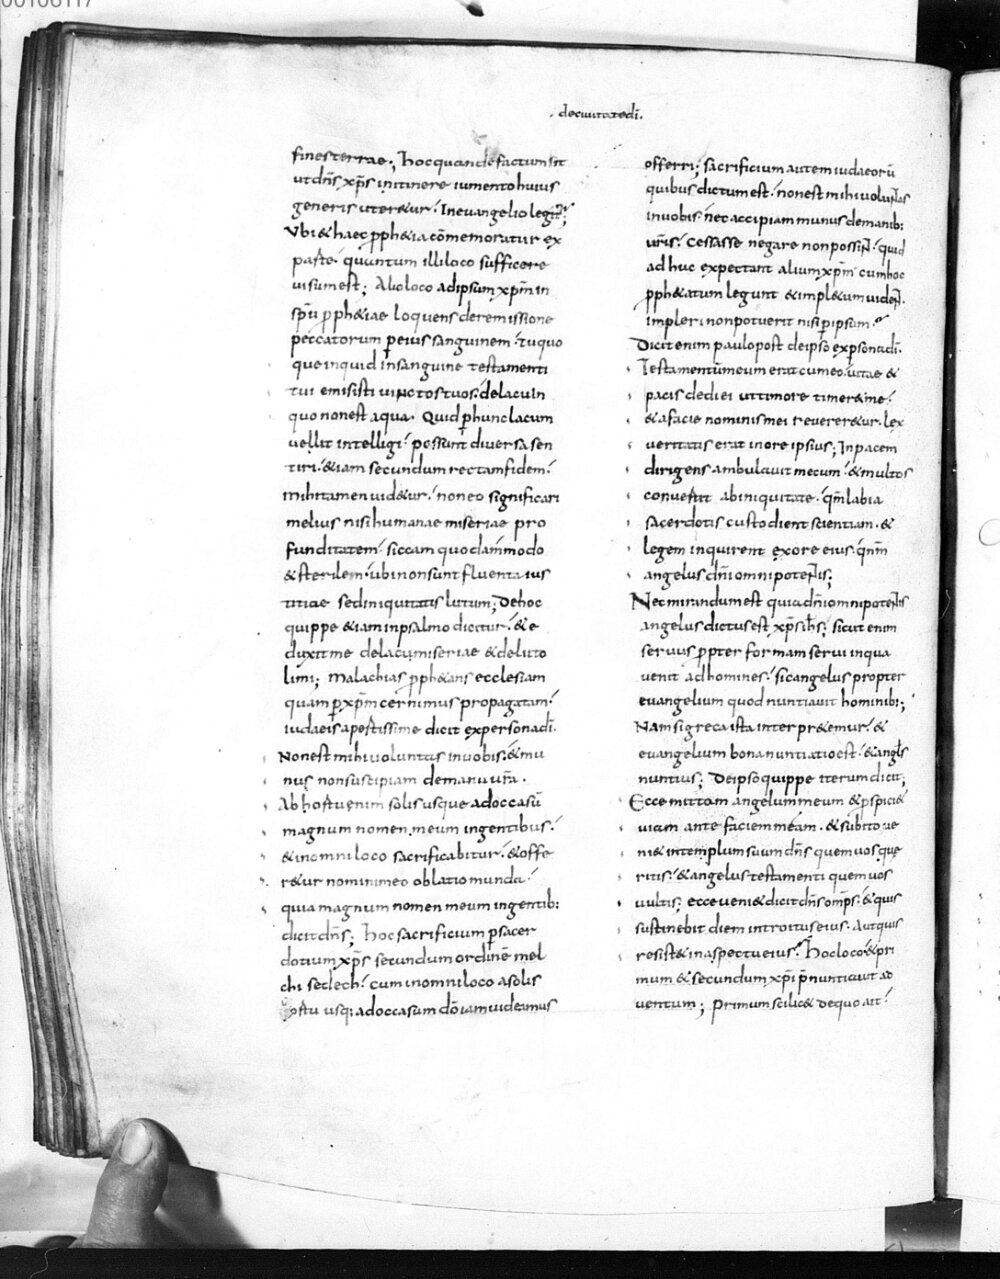 00106117
· deciuitatedī.
finesterrae; hocquandofactumsit
utdn̄s xp̄s initinere iumentohuius
generis uter&ur; Ineuangeliolegit̄;
Vbi&haec pph&iacōmemoratur ex
parte quantum illiloco sufficere
uisumest; Alioloco adipsum xp̄m in
sp̄u pph&iae loquens deremissione
peccatorum p eius sanguinem; tuquo
que inquid insanguine testamenti
tui emisisti uinctostuos delacuin
quo nonest aqua· Quid p hunc lacum
uellit intelligi possunt diuersasen
tiri· &iam secundum rectamfidem·
mihitamenuid&ur· noneo significari
melius nisihumanae miseriae pro
funditatem siccam quodammodo
&sterilem· ubinonsuntfluentaius
titiae sediniquitatis lutum; Dehoc
quippe &iaminpsalmo dicitur· &e
duxitme delacumiseriae &deluto
limi; Malachias pph&ans ecclesiam
quam p xp̄m cernimus propagatam·
iudaeis apertissime dicit expersonadī·
Nonest mihi uoluntas inuobis· &mu
nus nonsuscipiam demanuur̄a·
Abhortuenim solis usque adoccasū
magnum nomen meum ingentibus·
&inomniloco sacrificabitur· &offe
r&ur nominimeo oblatiomunda·
quia magnum nomen meum ingentib:
dicit dn̄s; hoc sacrificium p sacer
dotium xp̄i secundum ordinē mel
chisedech· cum inomniloco asolis
ortu usq; adoccasum dō iamuideamus
offerri; sacrificium autem iudaeorū
quibus dictumest· nonest mihi uoluntas
inuobis· nec accipiam munus demanib:
ur̄is· Cessasse negare nonpossint· quid
adhuc expectant alium xp̄m cum hoc
pph&atum legunt &impl&um uident·
impleri nonpotuerit nisi p ipsum·
Dicit enim paulopost deipso expsonadī·
Testamentum meum erat cumeo uitae &
pacis· dediei uttimore timer&me·
&afacie nominis mei reverer&ur· lex
ueritatis erat inore ipsius; Inpacem
dirigens ambulauit mecum· &multos
conuertit abiniquitate· qm̄ labia
sacerdotis custodient scientiam· &
legem inquirent exore eius· qnm̄
angelus dn̄i omnipotentis;
Nec mirandumest quia dn̄i omnipotentis
angelus dictus est xp̄s ih̄s; sicut enim
seruus ppter formam serui inqua
uenit adhomines· sicangelus propter
euangelium quod nuntiauit hominib:;
Nam si greca ista interpr&emur· &
euangelium bona nuntiatio est· &angls
nuntius; Deipso quippe iterum dicit;
Ecce mittam angelum meum &p spici&
uiam ante faciem meam· &subito ue
ni& intemplum suum dn̄s quem uos que
ritis· &angelus testamenti quem uos
uultis; ecce ueni& dicit dn̄s omp̄s· &quis
sustinebit diem introitus eius· Autquis
resist& inaspectu eius· hocloco &pri
mum &secundum xp̄i p̄nuntiauit ad
uentum; primum scilic& dequo ait·